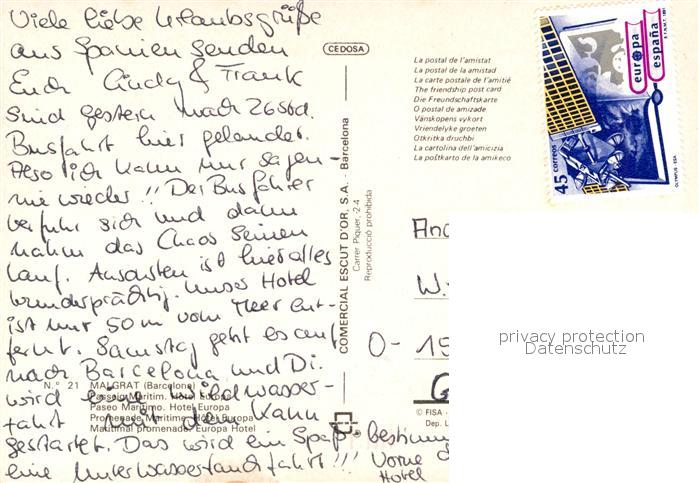 Viele liebe Urlaubsgrüße
aus Spanien senden
Euch Cindy & Frank
Sind gestern nach 26 Std.
Busfahrt hier gelandet.
Also ich kann nur sagen -
nie wieder!! Der Busfahrer
verfuhr sich und dann
nahm das Chaos seinen
Lauf. Ansonsten ist hier alles
wunderprächtig. Unser Hotel
ist nur 50 m vom Meer ent-
fernt. Samstag geht es auf
nach Barcelona und Di.
wird eine Wildwasser-
fahrt mit dem Kanu
gestartet. Das wird ein Spaß. bestimmt
eine Unterwassertauchfahrt!!!
Vorne
Hotel
N.° 21 MALGRAT (Barcelona)
Passeig Marítim. Hotel Europa
Paseo Marítimo. Hotel Europa
Promenade Maritime. Hotel Europa
Maritimal promenade. Europa Hotel
CEDOSA
COMERCIAL ESCUT D'OR, S.A. - Barcelona
Carrer Piquer, 2-4
Reproducció prohibida
La postal de l'amistat
La postal de la amistad
La carte postale de l'amitié
The friendship post card
Die Freundschaftskarte
O postal de amizade
Vänskapens vykort
Vriendelyke groeten
Otkritka druchbi
La cartolina dell'amicizia
La poŝtkarto de la amikeco
europa
españa
45 correos
OLYMPUS - ESA
F.N.M.T. 1991
And
W.
O- 15
G
© FISA -
Dep. L
privacy protection
Datenschutz